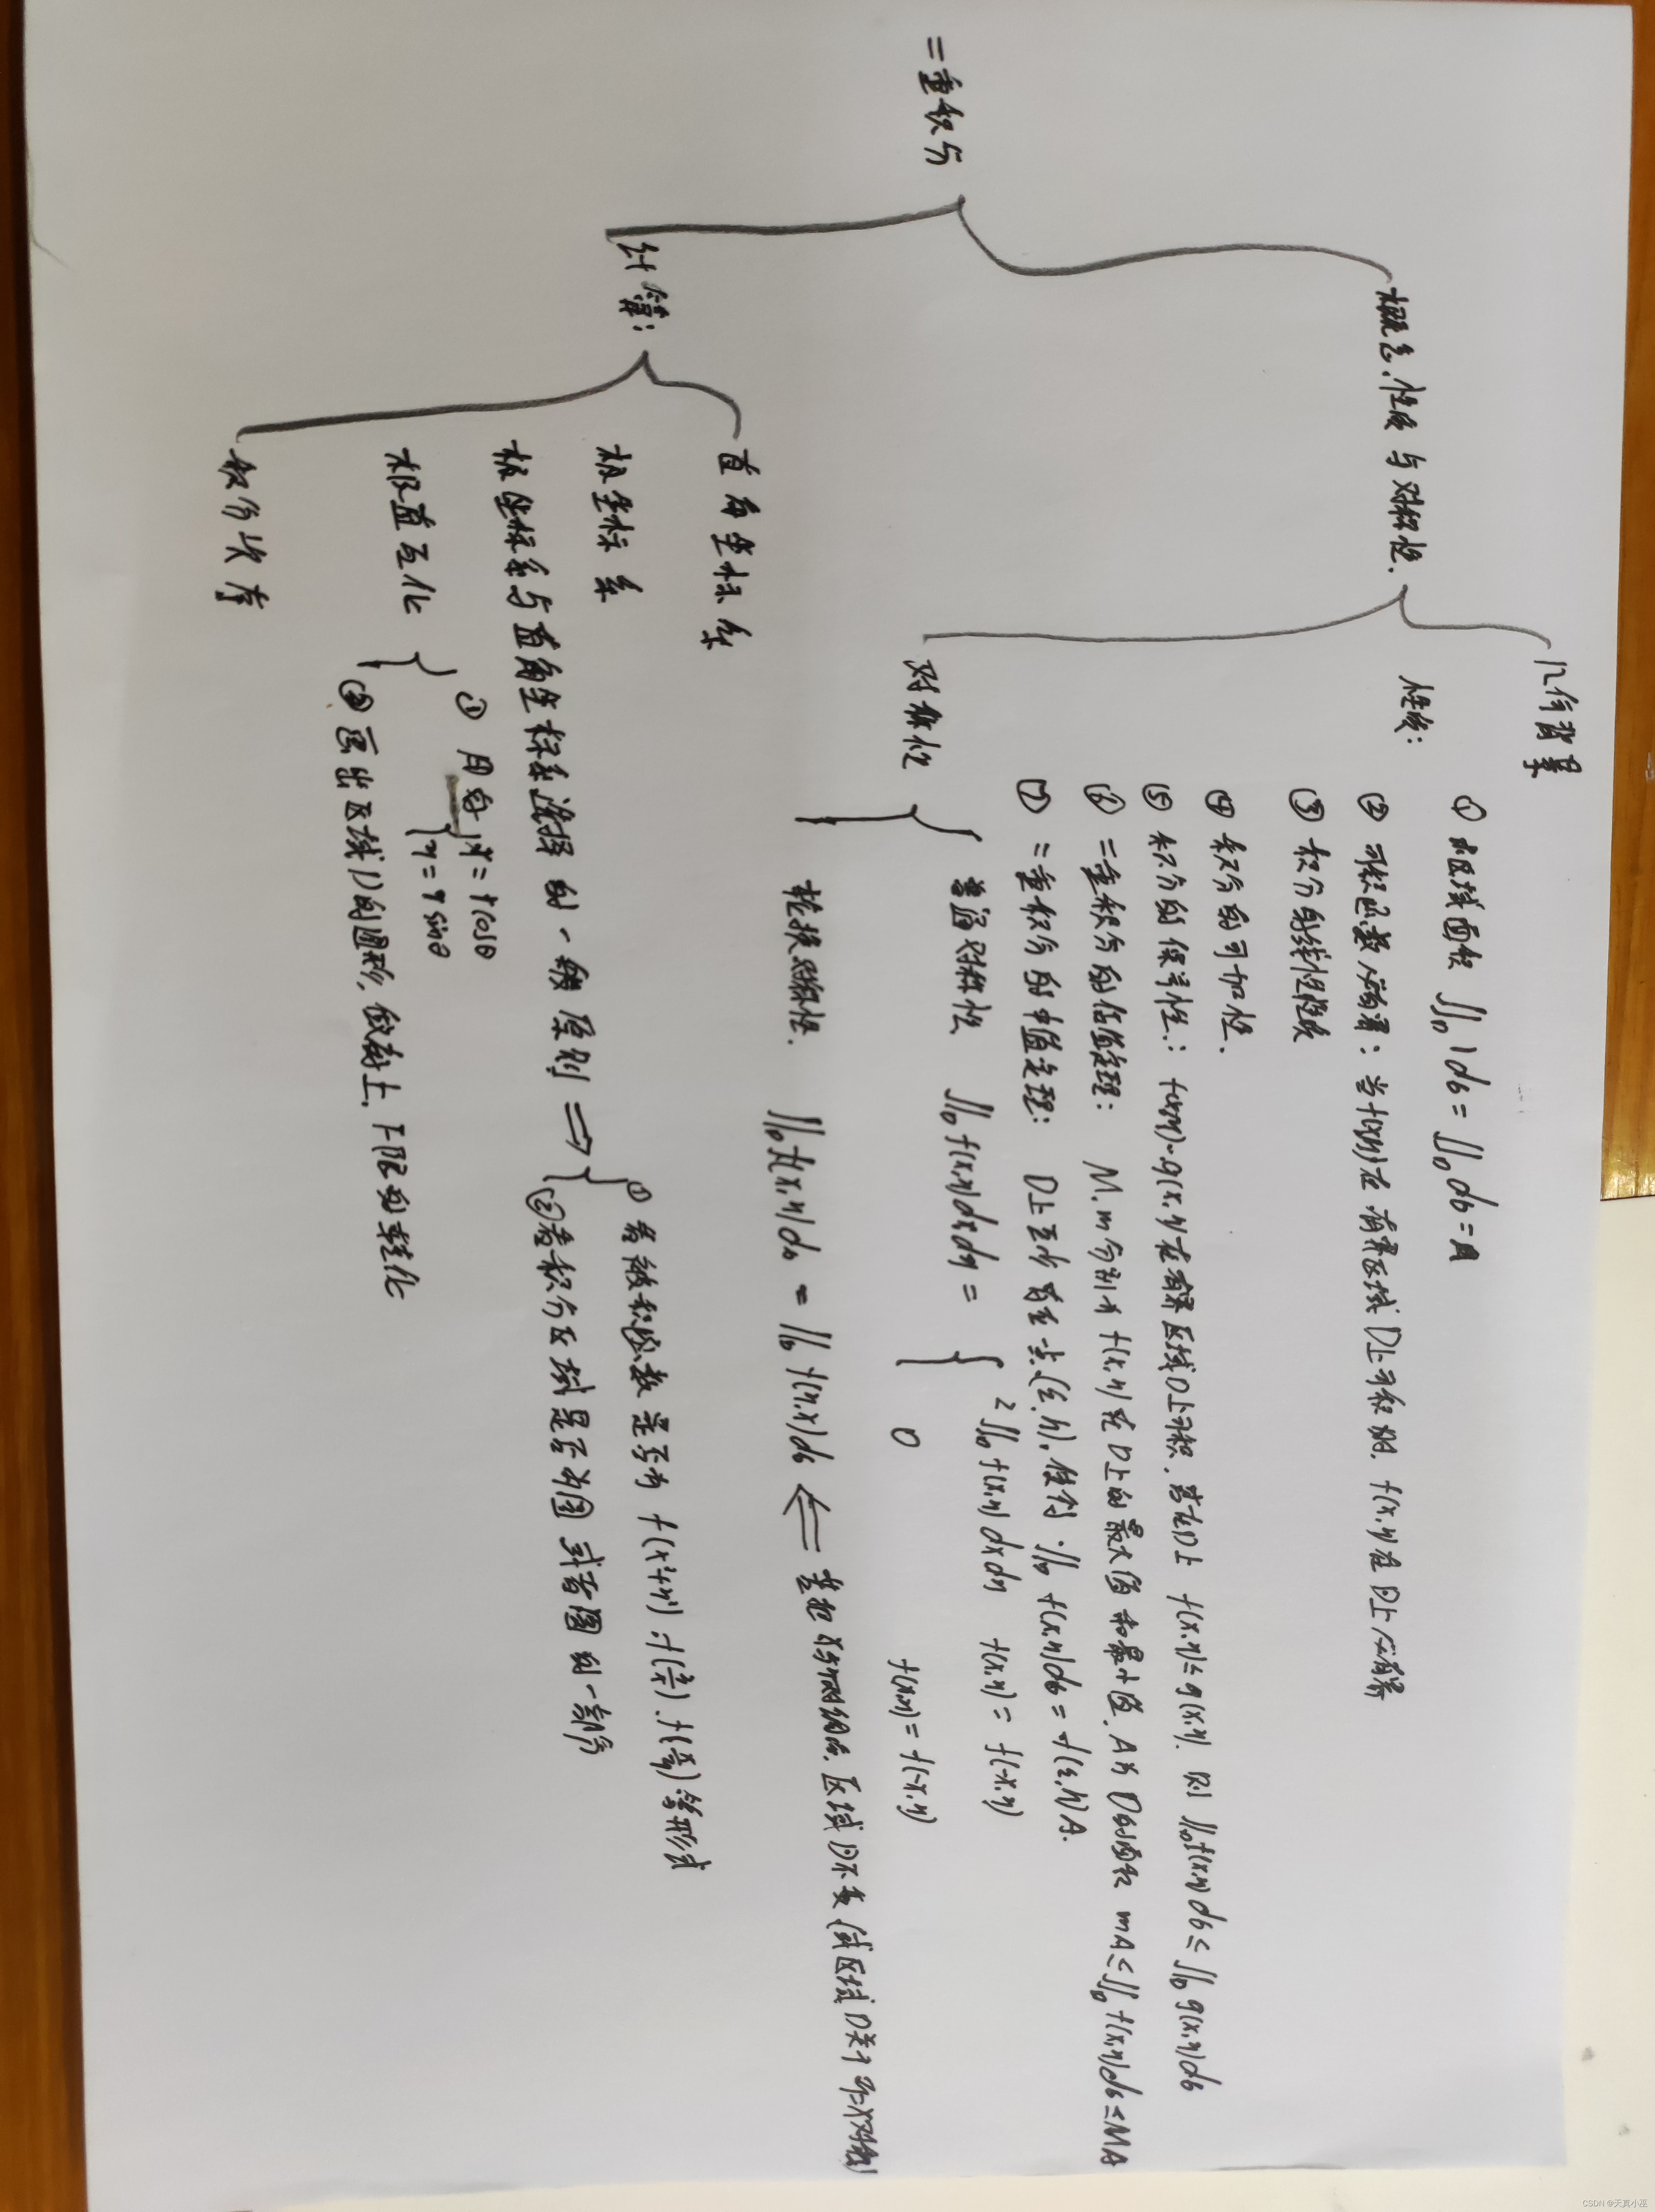 二重积分
概念.性质与对称性.
几何背景
性质:
① 区域面积 ∬_D 1dσ = ∬_D dσ = A
② 可积函数必有界: 当f(x,y)在有界区域D上可积时, f(x,y)在D上必有界
③ 积分的线性性质
④ 积分的可加性.
⑤ 积分的保号性: f(x,y) g(x,y)在有界区域D上可积, 若在D上 f(x,y)≤g(x,y). 则 ∬_D f(x,y)dσ ≤ ∬_D g(x,y)dσ
⑥ 二重积分的估值定理: M.m分别为f(x,y)在D上的最大值和最小值, A为D的面积 mA≤∬_D f(x,y)dσ≤MA
⑦ 二重积分的中值定理: D上至少存在一点(ξ,η), 使得 ∬_D f(x,y)dσ = f(ξ,η)A.
对称性
普通对称性 ∬_D f(x,y)dxdy =
2∬_D f(x,y)dxdy f(x,y) = f(-x,y)
0 f(x,y) = f(-x,y)
轮换对称性. ∬_D f(x,y)dσ = ∬_D f(y,x)dσ ⇐ 若把x与y对调后, 区域D不变(或区域D关于y=x对称)
计算:
直角坐标系
极坐标系
极坐标系与直角坐标系选择的一般原则 ⇒
① 看被积函数是否为 f(x²+y²). f(y/x). f(x/y)等形式
② 看积分区域是否为圆或者圆的一部分
极直互化
① 用好 x = rcosθ
y = r sinθ
② 画出区域D的图形, 做好上.下限的转化
积分次序
CSDN @天真小巫